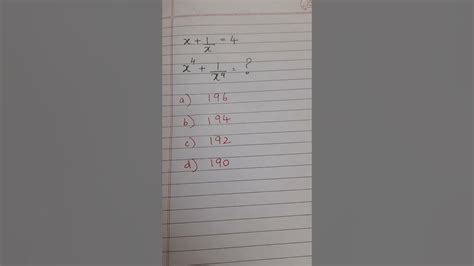 x + 1/x = 4
x⁴ + 1/x⁴ = ?
a) 196
b) 194
c) 192
d) 190